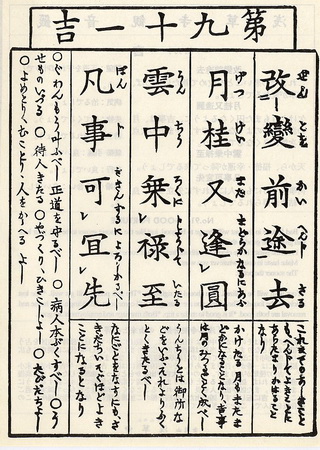 第九十一吉
改變前途去
げつけいまたまどかなるにあふ
月桂又逢圓
雲中乗禄至
凡事可宜先
これまでのあしきこと
も、へんじてよきことに
あらたまりかはること
なり
かけたる月もまたま
どかになることなり、吉事
は月のみつるごとく成べし
うんちうとは御所な
どをいふ
とくきたるべし
なにごとをなすにも、さ
きだちていそげばよき
ことになるとなり
○ぐわんもう叶ふべし 正道を守るべし ○病人本ぷくすべし ○う
せものいづる ○待人きたる ○やづくり、ひきこしよし ○たびだちよし
○よめとり、むことり、人をかゝへるよし